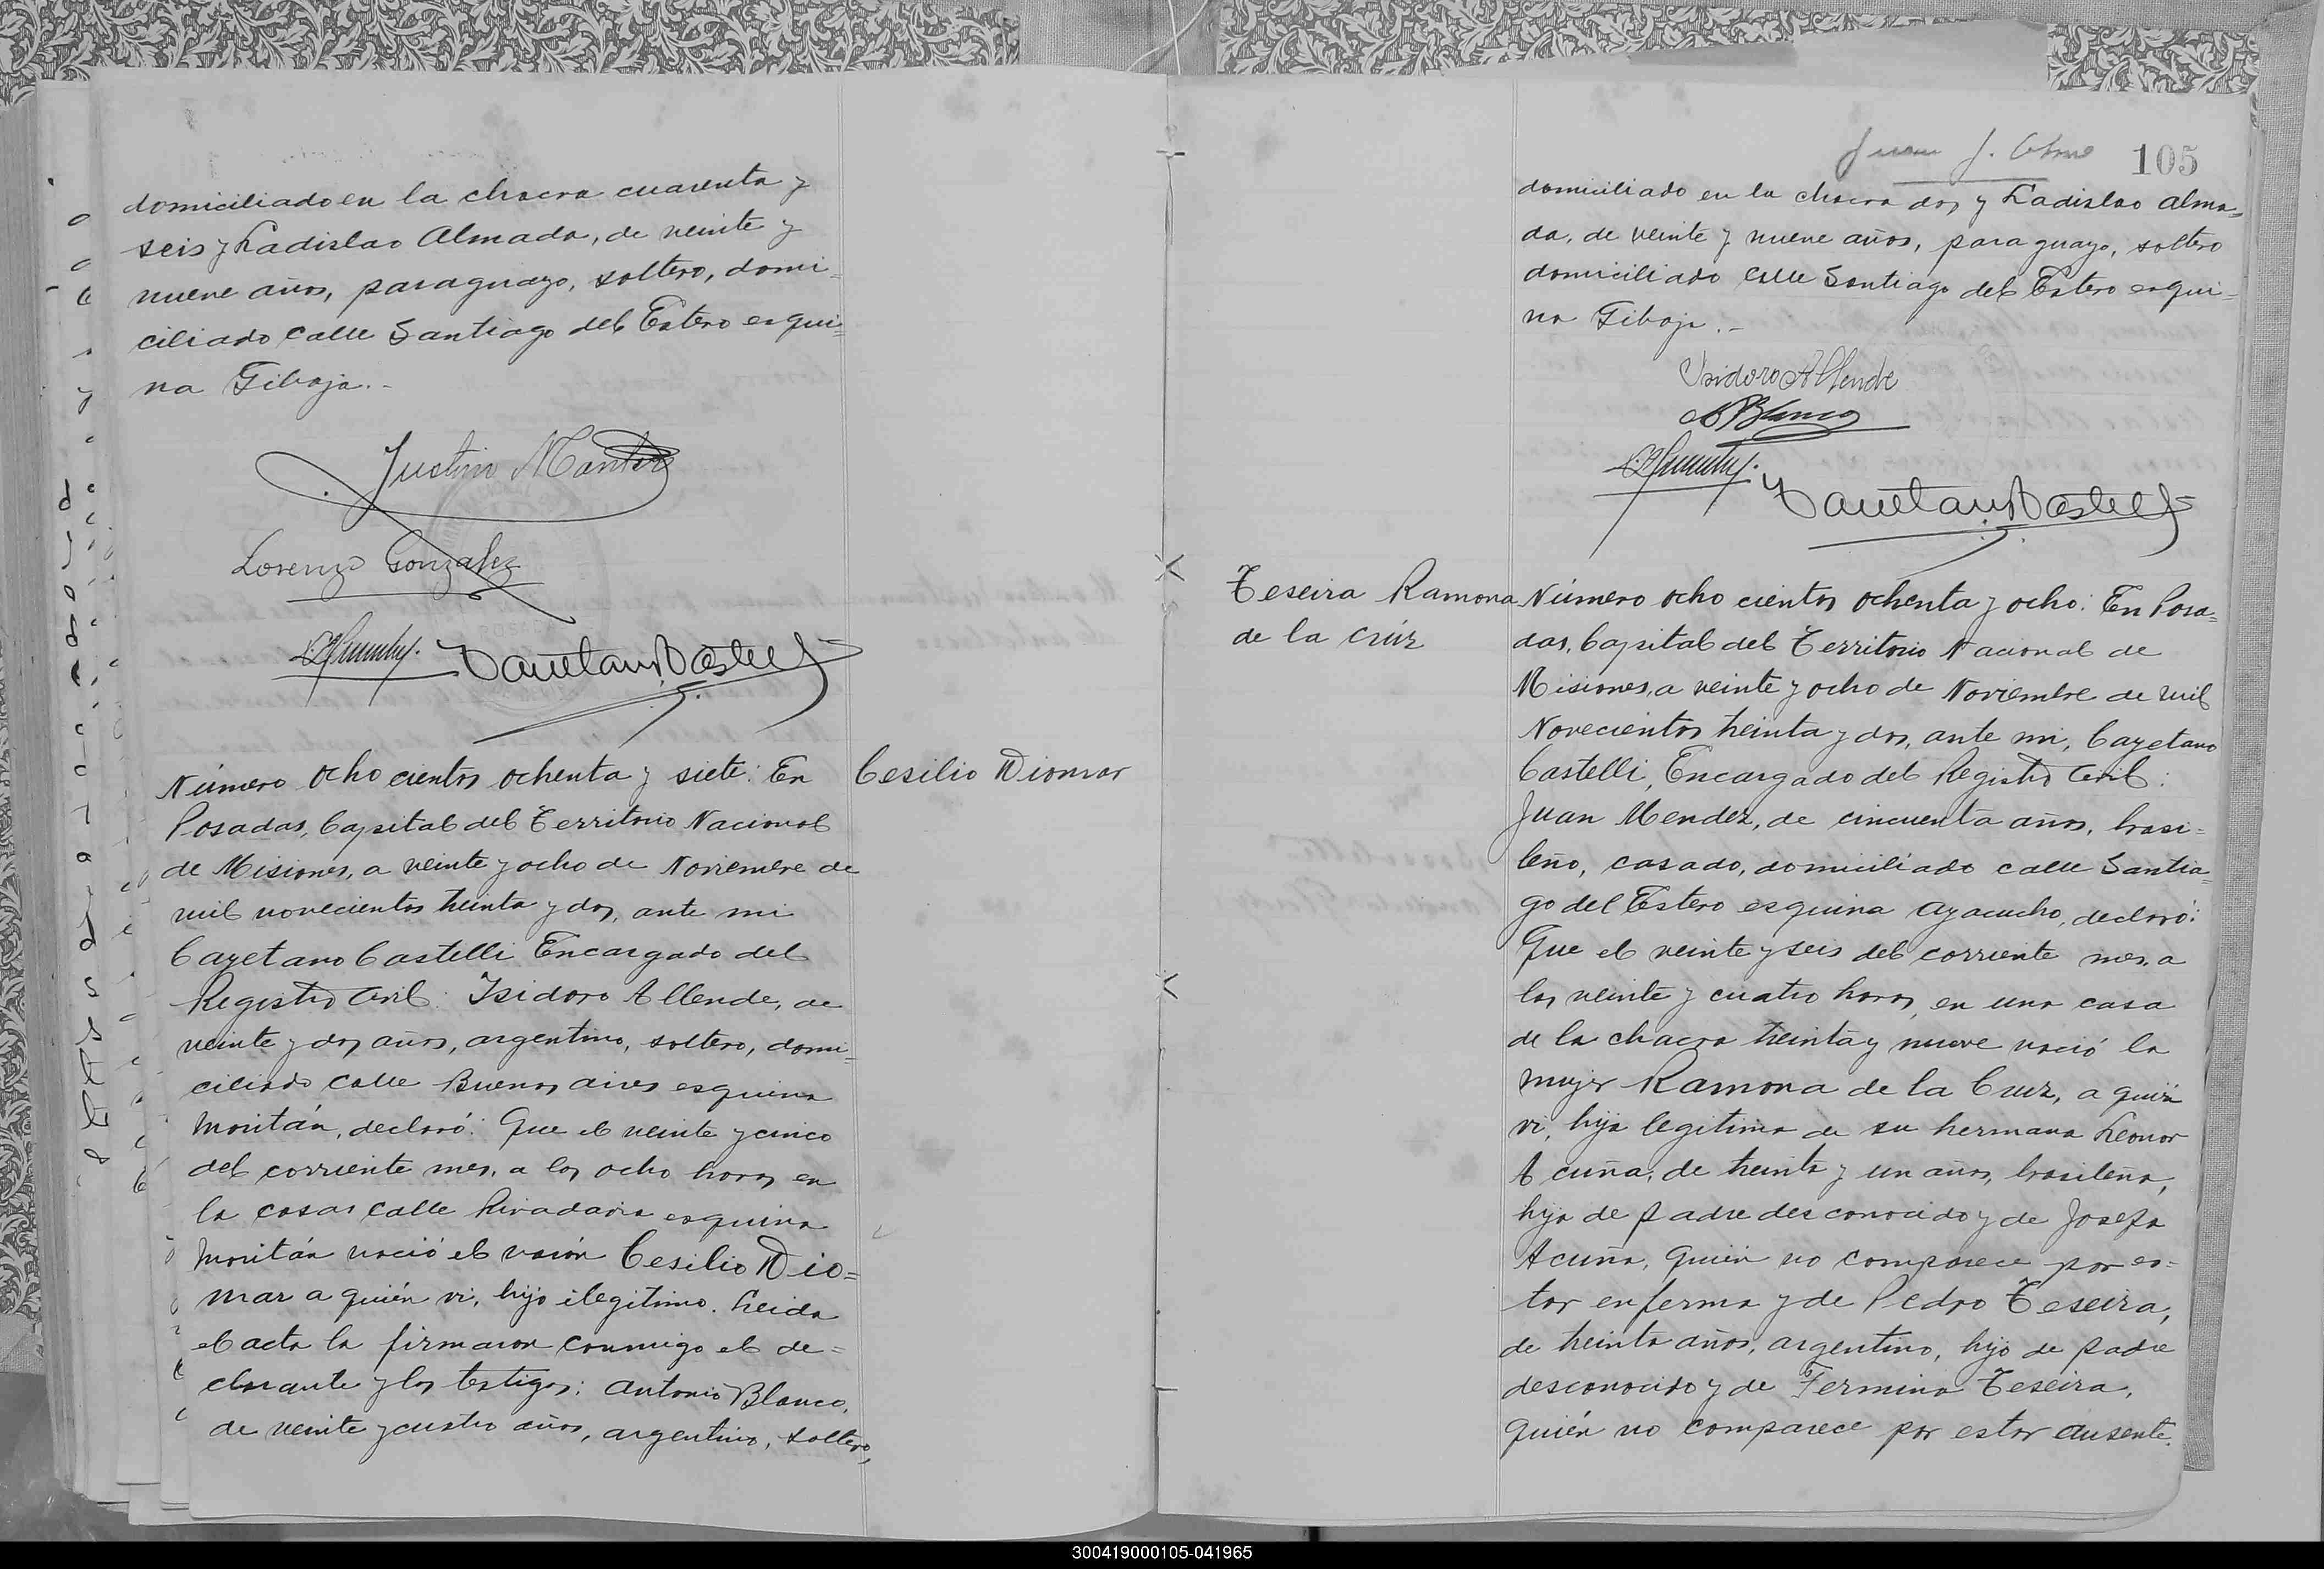 domiciliado en la chacra cuarenta y
seis y Ladislao Almada, de veinte y
nueve años, paraguayo, soltero, domi=
ciliado calle Santiago del Estero esqui=
na Tiboja.-
Justin
Lorenzo Gonzalez
Número ocho cientos ochenta y siete: En
Posadas, Capital del Territorio Nacional
de Misiones, a veinte y ocho de Noviembre de
mil novecientos treinta y dos, ante mi
Cayetano Castelli Encargado del
Registro Civil: Isidoro Allende, de
veinte y dos años, argentino, soltero, domi=
ciliado calle Buenos Aires esquina
Moritán, declaró: Que el veinte y cinco
del corriente mes, a las ocho horas en
la casas calle Rivadavia esquina
Moritán nació el varón Cesilio Dio=
mar a quién vi, hijo ilegítimo. Leida
el acta la firmaron conmigo el de=
clarante y los testigos: Antonio Blanco,
de veinte y cuatro años, argentino, soltero,
Cesilio Diomar
105
domiciliado en la chacra dos y Ladislao Alma=
da, de veinte y nueve años, paraguayo, soltero
domiciliado calle Santiago del Estero esqui=
na Tiboja.-
Isidoro Allende
Blanco
Teseira Ramona
de la Crúz
Número ocho cientos ochenta y ocho: En Posa=
das, Capital del Territorio Nacional de
Misiones, a veinte y ocho de Noviembre de mil
Novecientos treinta y dos, ante mi, Cayetano
Castelli, Encargado del Registro Civil:
Juan Mendez, de cincuenta años, brasi=
leño, casado, domiciliado calle Santia=
go del Estero esquina Ayacucho, declaró:
Que el veinte y seis del corriente mes, a
las veinte y cuatro horas, en una casa
de la chacra treinta y nueve nació la
mujer Ramona de la Cruz, a quién
vi, hija legítima de su hermana Leonor
Acuña, de treinta y un años, brasileña,
hija de padre desconocido y de Josefa
Acuña, quién no comparece por es=
tar enferma y de Pedro Teseira,
de treinta años, argentino, hijo de padre
desconocido y de Fermina Teseira,
quién no comparece por estar ausente.
300419000105-041965